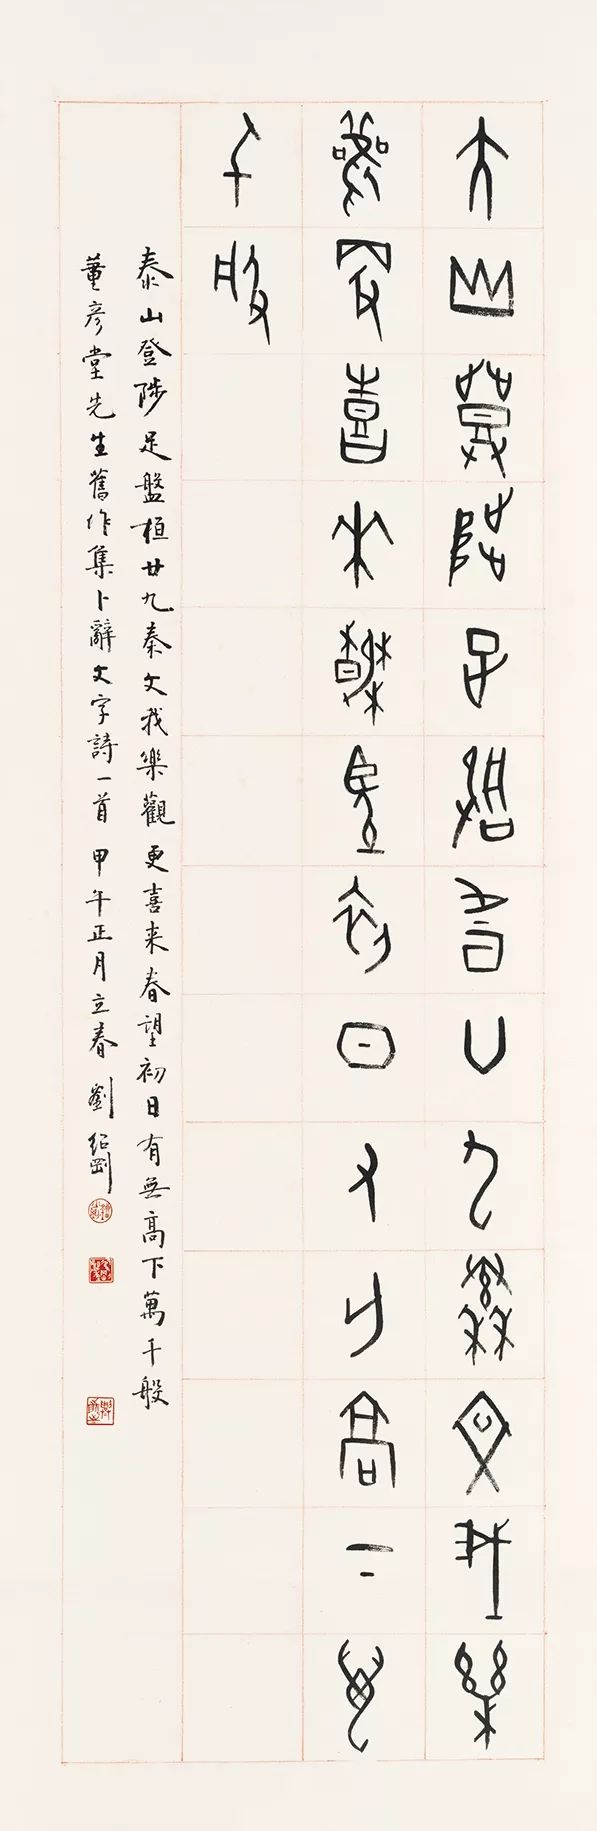 大山登陟足盤亘廿九秦文我樂
雚更喜來春望初日又亡高下萬
千般
泰山登陟足盤桓廿九秦文我樂觀更喜来春望初日有無高下萬千般
董彦堂先生舊作集卜辭文字詩一首甲午正月立春劉紹剛